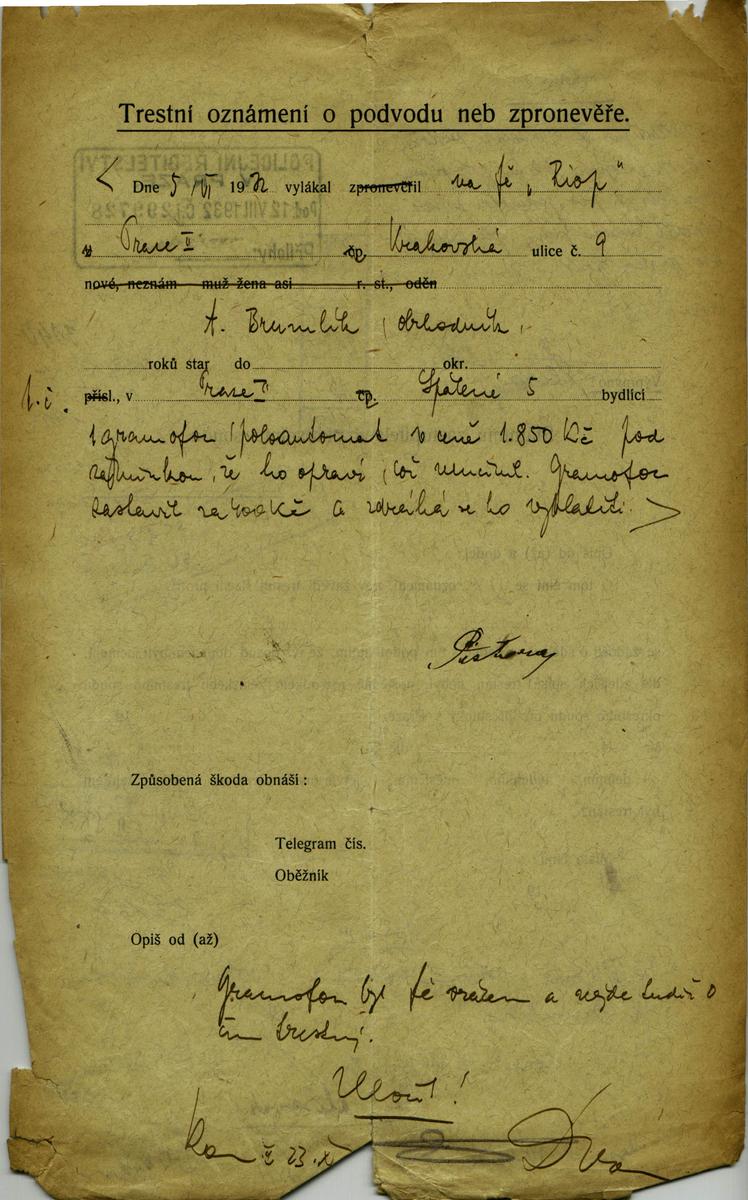 Trestní oznámení o podvodu neb zpronevěře.
< Dne 5/VI 1932 vylákal zpronevěřil na fě „Riop“
v Praze II čp. Krakovská ulice č. 9
nové, neznám muž žena asi r. st., oděn
A. Brumlík, obchodník,
roků star do okr.
t. č. přísl., v Praze II čp. Spálená 5 bydlící
1 gramofon, poloautomat v ceně 1.850 Kč pod
záminkou, že ho opraví, což neučinil. Gramofon
zastavil za Kč a zdráhá se ho vyplatiti. >
Způsobená škoda obnáší:
Telegram čís.
Oběžník
Opiš od (až)
Gramofon byl fě vrácen a nejde tudíž o
čin trestný.
Uložit!
23.